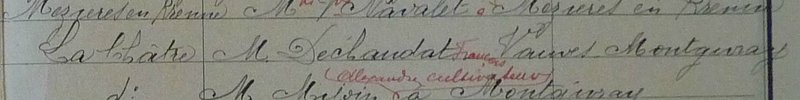 Mezieres en Brenne Mme Vve Navalet à Mézières en Brenne
La Châtre M. Dechaudat français Vauves Montgivray
(Alexandre cultivateur)
d: M. à Montgivray